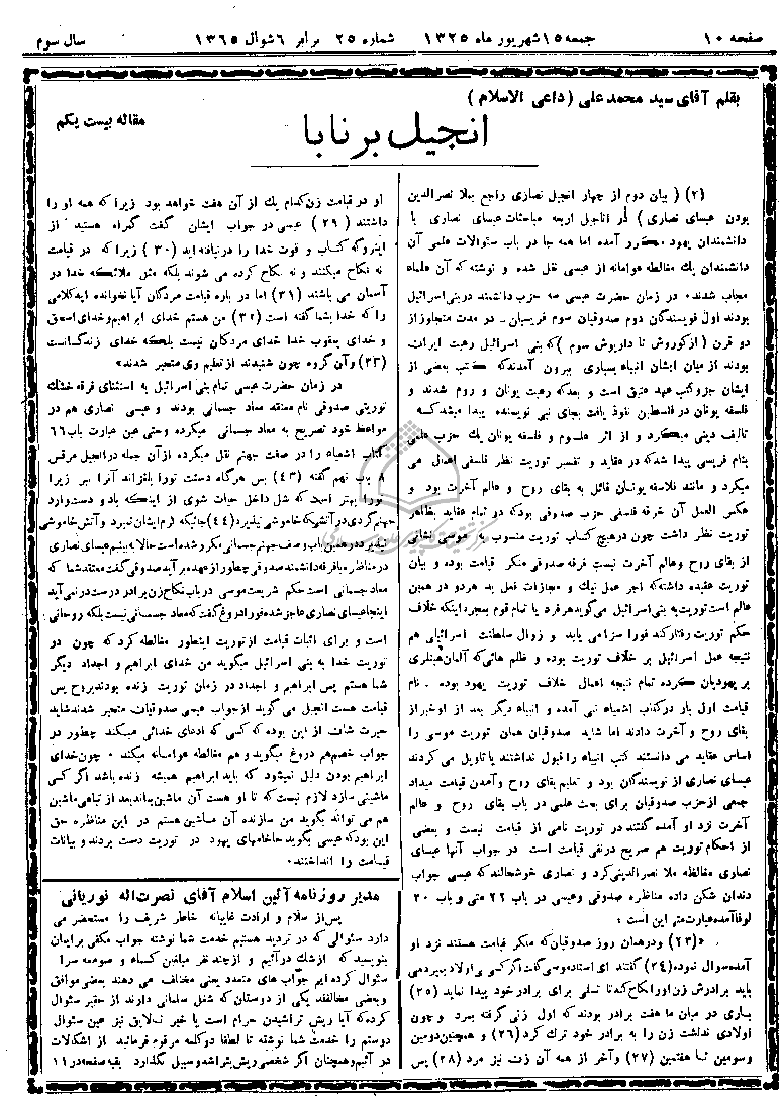 صفحه ۱۰
جمعه ۱۵ شهریور ماه ۱۳۲۵
شماره ۲۵ برابر ۶ شوال ۱۳۶۵
سال سوم
بقلم آقای سید محمد علی (داعی الاسلام)
مقاله بیست یکم
انجیل برنابا
(۲) (بیان دوم از چهار انجیل نصاری راجع بملا نصرالدین
بودن عیسای نصاری) در اناجیل اربعه مباحثات عیسای نصاری با
دانشمندان یهود مکرر آمده اما همه جا در باب سئوالات علمی آن
دانشمندان یك مغالطه عوامانه از عیسی نقل شده و نوشته که آن علماء
مجاب شدند، در زمان حضرت عیسی سه حزب دانشمند در بنی اسرائیل
بودند اول نویسندگان دوم صدوقیان سوم فریسیان - در مدت متجاوز از
دو قرن (از کوروش تا داریوش سوم) که بنی اسرائیل رعیت ایران
بودند از میان ایشان انبیاء بسیاری بیرون آمدند که کتب بعضی از
ایشان جزو کتب عهد عتیق است و بعد که رعیت یونان و روم شدند و
فلسفه یونان در فلسطین نفوذ یافت بجای نبی نویسنده پیدا میشد که
تالیف دینی میکرد و از اثر علوم و فلسفه یونان یك حزب علمی
بنام فریسی پیدا شد که در عقاید و تفسیر توریت نظر فلسفی اعمال می
میکرد و مانند فلاسفه یونان قائل به بقای روح و عالم آخرت بود و
عکس العمل آن فرقه فلسفی حزب صدوقی بود که در تمام عقاید بظاهر
توریت نظر داشت چون در هیچ کتاب توریت منسوب به موسی نشانی
از بقای روح و عالم آخرت نیست فرقه صدوقی منکر قیامت بود و بیان
توریت عقیده داشته که اجر عمل نیك و مجازات فعل بد هر دو در همین
عالم است توریت به بنی اسرائیل میگوید هر فرد یا تمام قوم بمجرد اینکه خلاف
حکم توریت رفتار کند فورا سزا می یابد و زوال سلطنت اسرائیلی هم
نتیجه عمل اسرائیل بر خلاف توریت بوده و ظلم هائی که آلمان هیتلری
بر یهودیان کرده تمام نتیجه اعمال خلاف توریت یهود بوده - نام
قیامت اول بار در کتاب اشعیاء نبی آمده و انبیاء دیگر بعد از او خبر از
بقای روح و آخرت دادند اما شاید صدوقیان همان توریت موسی را
اساس عقاید می دانستند کتب انبیاء را قبول نداشتند یا تاویل می کردند
عیسای نصاری از نویسندگان بود و تعلیم بقای روح و آمدن قیامت میداد
جمعی از حزب صدوقیان برای بحث علمی در باب بقای روح و عالم
آخرت نزد او آمده گفتند در توریت نامی از قیامت نیست و بعضی
از احکام توریت هم صریح در نفی قیامت است در جواب آنها عیسای
نصاری مغالطه ملا نصرالدینی کرد و نصاری خوشحالند که عیسی جواب
دندان شکن داده مناظره صدوقی و عیسی در باب ۲۲ متی و باب ۲۰
لوقا آمده عبارت متی این است:
«(۲۳) و در همان روز صدوقیان که منکر قیامت هستند نزد او
آمده سوال نموده (۲۴) گفتند ای استاد موسی گفت اگر کسی بی اولاد بمیرد می
باید برادرش زن او را نکاح کند تا نسلی برای برادر خود پیدا نماید (۲۵)
باری در میان ما هفت برادر بودند که اول زنی گرفته بمرد و چون
اولادی نداشت زن را به برادر خود ترك کرد (۲۶) و همچنین دومین
و سومین تا هفتمین (۲۷) و آخر از همه آن زن نیز مرد (۲۸) پس
او در قیامت زن کدام یك از آن هفت خواهد بود زیرا که همه او را
داشتند (۲۹) عیسی در جواب ایشان گفت گمراه هستید از
اینرو که کتاب و قوت خدا را در نیافته اید (۳۰) زیرا که در قیامت
نه نکاح میکنند و نه نکاح کرده می شوند بلکه مثل ملائکه خدا در
آسمان می باشند (۳۱) اما در باره قیامت مردگان آیا نخوانده اید کلامی
را که خدا بشما گفته است (۳۲) من هستم خدای ابراهیم و خدای اسحق
و خدای یعقوب خدا خدای مردگان نیست بلکه خدای زندگانست
(۳۳) و آن گروه چون شنیدند از تعلیم وی متحیر شدند»
در زمان حضرت عیسی تمام بنی اسرائیل به استثنای فرقه خشك
توریتی صدوقی نام معتقد معاد جسمانی بودند و عیسی نصاری هم در
مواعظ خود تصریح به معاد جسمانی میکرده و حتی عین عبارت باب ۶۶
کتاب اشعیاء را در صفت جهنم نقل میکرده از آن جمله در انجیل مرقس
باب نهم گفته (۴۳) پس هرگاه دستت تورا بلغزاند آنرا ببر زیرا
تورا بهتر است که شل داخل حیات شوی از اینکه با دو دست وارد
جهنم گردی در آتشی که خاموشی نپذیرد (۴۴) جائیکه کرم ایشان نمیرد و آتش خاموشی
نپذیرد در همین باب وصف جهنم جسمانی مکرر شده است حالا به بینیم عیسای نصاری
در مناظره با فرقه دانشمند صدوقی چطور از عهده بر آید صدوقی گفت معتقد شما که
معاد جسمانی است حکم شریعت موسی در باب نکاح زن برادر درست در نمی آید
اینجا عیسای نصاری عاجز شده فورا دروغ گفت که معاد جسمانی نیست بلکه روحانی
است و برای اثبات قیامت از توریت اینطور مغالطه کرد که چون در
توریت خدا به بنی اسرائیل میگوید من خدای ابراهیم و اجداد دیگر
شما هستم پس ابراهیم و اجداد در زمان توریت زنده بودند بروح پس
قیامت هست انجیل می گوید از جواب عیسی صدوقیان متحیر شدند شاید
حیرت شان از این بوده که کسی که ادعای خدائی میکند چطور در
جواب خصم هم دروغ میگوید و هم مغالطه عوامانه میکند، چون خدای
ابراهیم بودن دلیل نمیشود که باید ابراهیم همیشه زنده باشد اگر کسی
ماشینی سازد لازم نیست که تا او هست آن ماشین بماند بعد از تباهی ماشین
هم می تواند بگوید من سازنده آن ماشین هستم در این مناظره حق
این بود که عیسی بگوید خاخامهای یهود در توریت دست بردند و بیانات
قیامت را انداختند.
مدیر روزنامه آئین اسلام آقای نصرت اله نوریانی
پس از سلام و ارادت غایبانه خاطر شریف را مستحضر می
دارد سئوالی که در تردید هستیم خدمت شما نوشته جواب مکفی برایمان
بنویسید که از شك در آئیم و از چند نفر مبلغین کلیساء و صومعه سرا
سئوال کرده ایم جواب های متعدد یعنی مختلف می دهند بعضی موافق
و بعضی مخالفند یکی از دوستان که شغل سلمانی دارند از حقیر سئوال
کرده که آیا ریش تراشیدن حرام است یا خیر تمالایق نیز عین سئوال
دوستم را خدمت شما نوشته تا لطفا دو کلمه مرقوم فرمائید از اشکالات
در آئیم و همچنان اگر شخصی ریش بتراشد وسیل گذارد بقیه صفحه در ۱۱